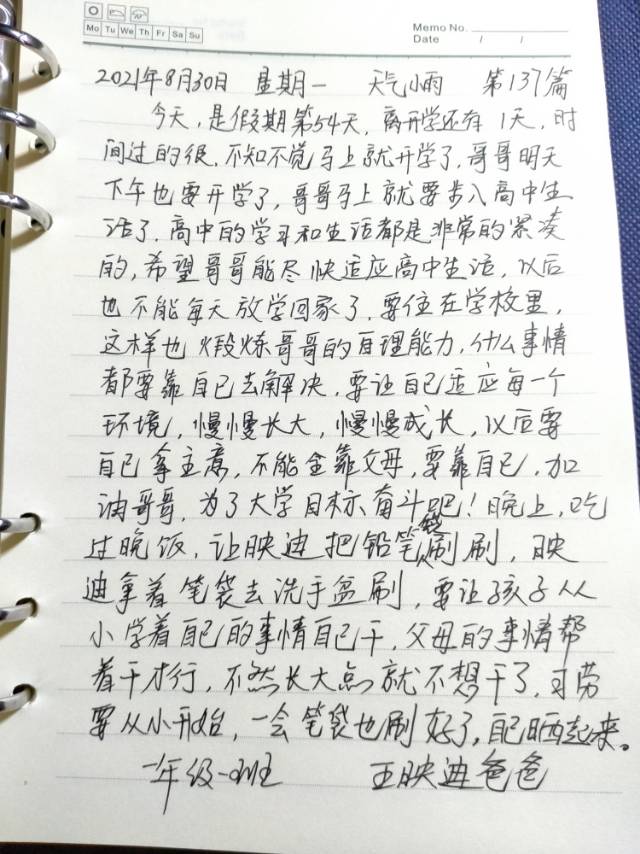 Mo Tu We Th Fr Sa Su
Memo No.
Date / /
2021年8月30日 星期一 天气小雨 第137篇
今天,是假期第54天,离开学还有1天,时
间过的很,不知不觉马上就开学了,哥哥明天
下午也要开学了,哥哥马上就要步入高中生
活了,高中的学习和生活都是非常的紧凑
的,希望哥哥能尽快适应高中生活,以后
也不能每天放学回家了,要住在学校里,
这样也煅炼哥哥的自理能力,什么事情
都要靠自己去解决,要让自己适应每一个
环境,慢慢长大,慢慢成长,以后要
自己拿主意,不能全靠父母,要靠自己,加
油哥哥,为了大学目标奋斗吧!晚上,吃
过晚饭,让映迪把铅笔袋刷刷,映
迪拿着笔袋去洗手盆刷,要让孩子从
小学着自己的事情自己干,父母的事情帮
着干才行,不然长大点就不想干了,可劳
要从小开始,一会笔袋也刷好了,自己晒起来。
一年级一班 王映迪爸爸